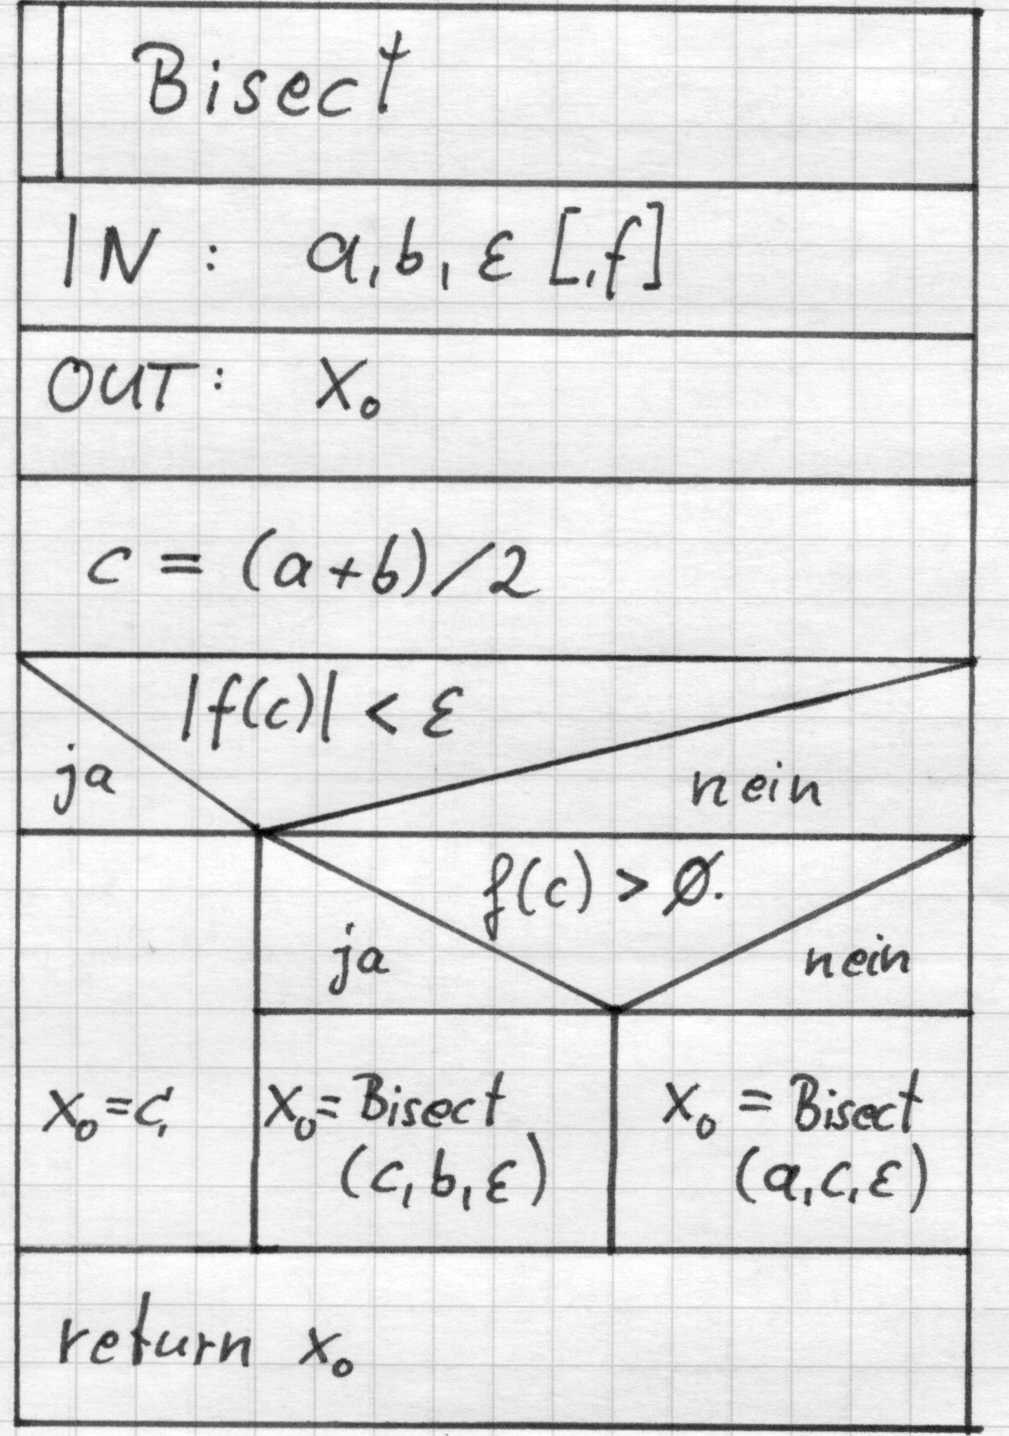 Bisect
IN : a, b, ε [,f]
OUT : X₀
c = (a+b)/2
|f(c)| < ε
ja
nein
f(c) > Ø.
ja
nein
X₀=c,
X₀= Bisect
(c, b, ε)
X₀ = Bisect
(a, c, ε)
return x₀